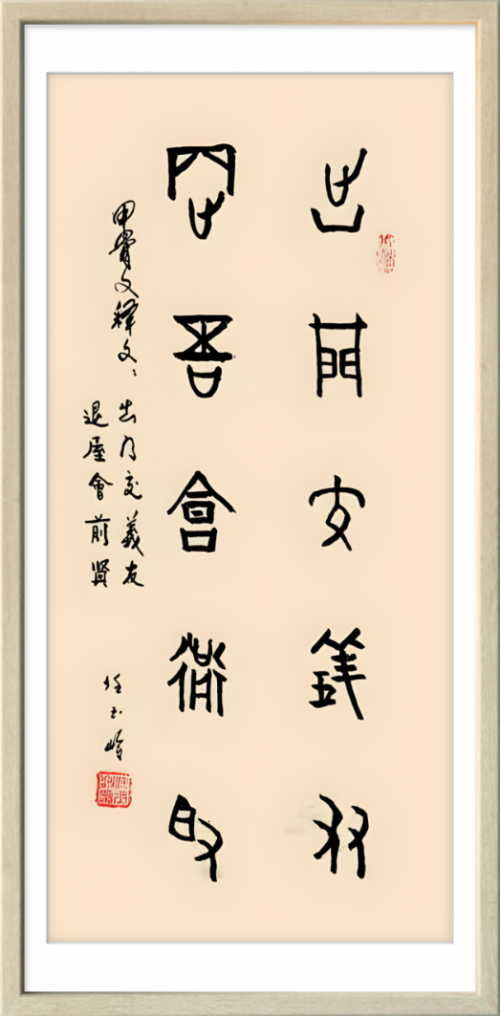 出門交義友
退屋會前賢
甲骨文釋文：出门交義友
退屋會前賢
任玉岭